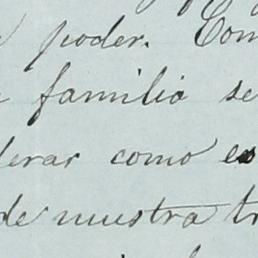 poder. Com
familia se
derar como es
de nuestra tr